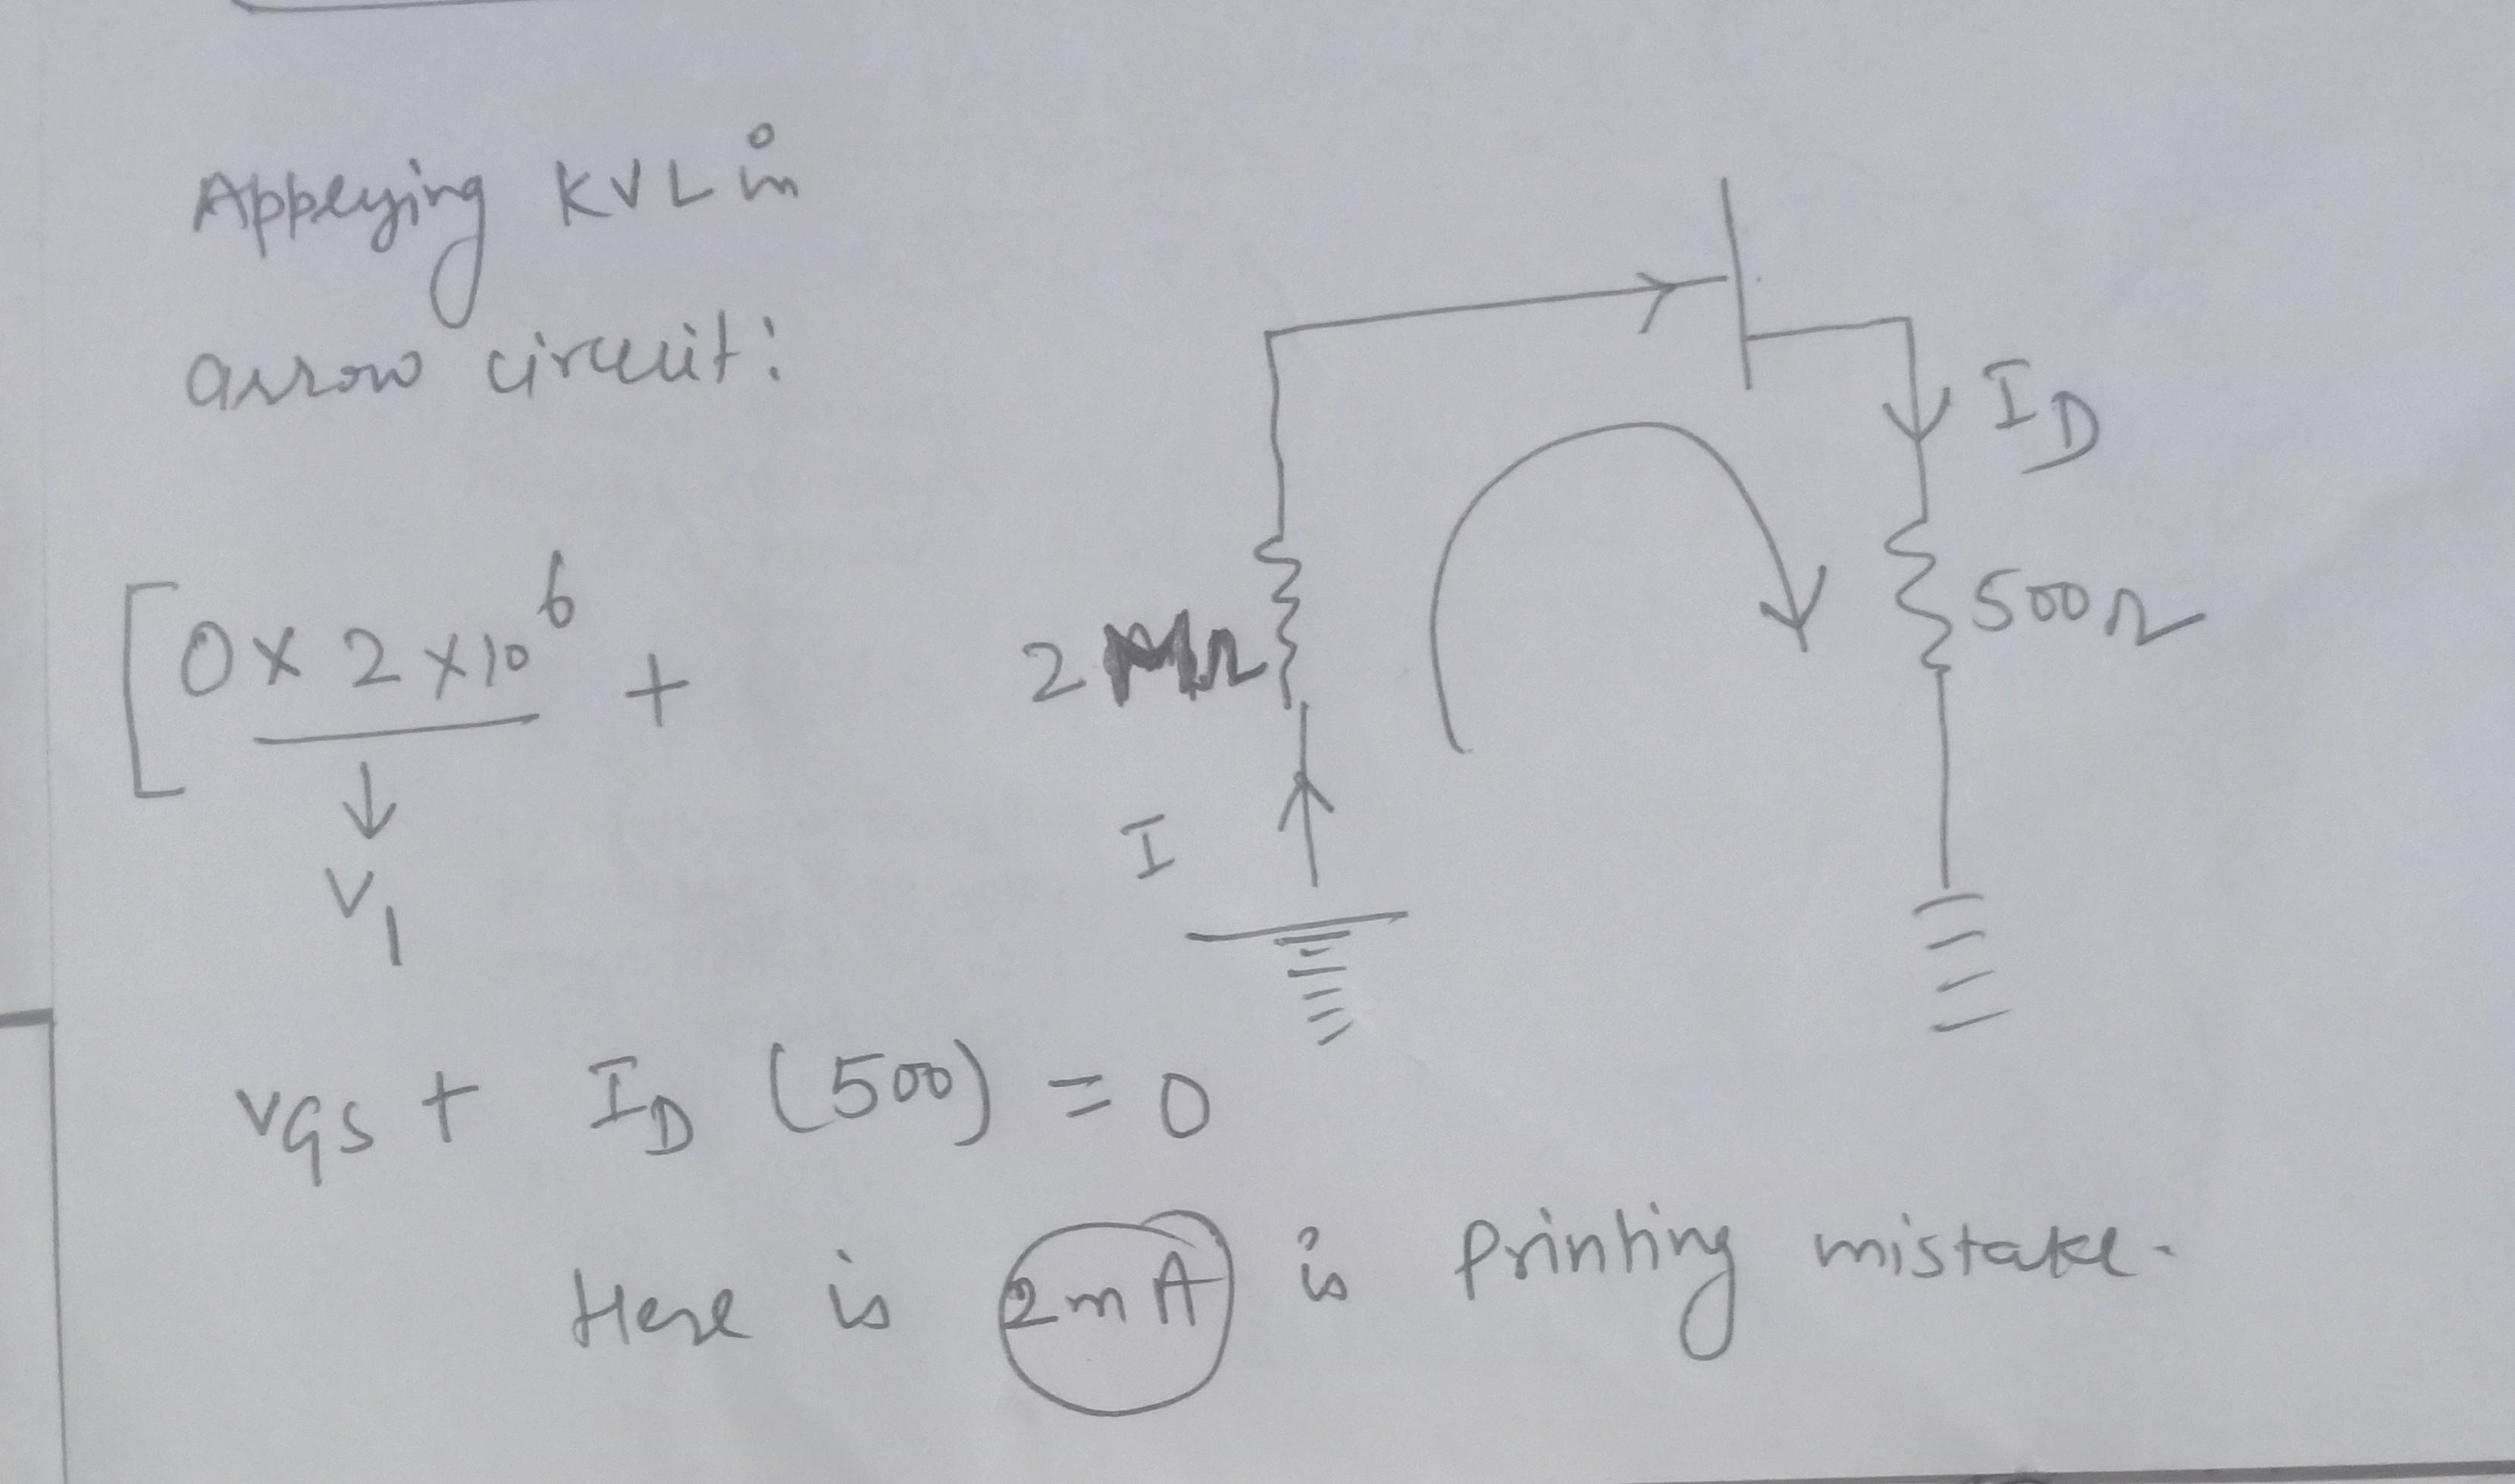 Applying KVL in
arrow circuit:
[0 x 2 x 10^6 +
↓
V1
VGS + ID (500) = 0
2 MΩ
I
ID
500Ω
Here is 2mA is printing mistake.